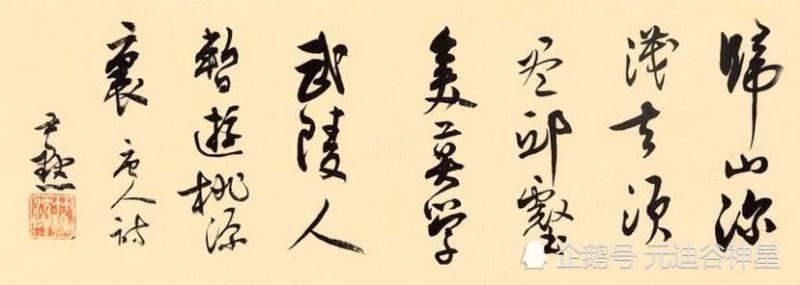 歸山深
淺去須
盡邱壑
美莫學
武陵人
暫遊桃源
裏 唐人詩
尹默
企鹅号 元迪谷神星